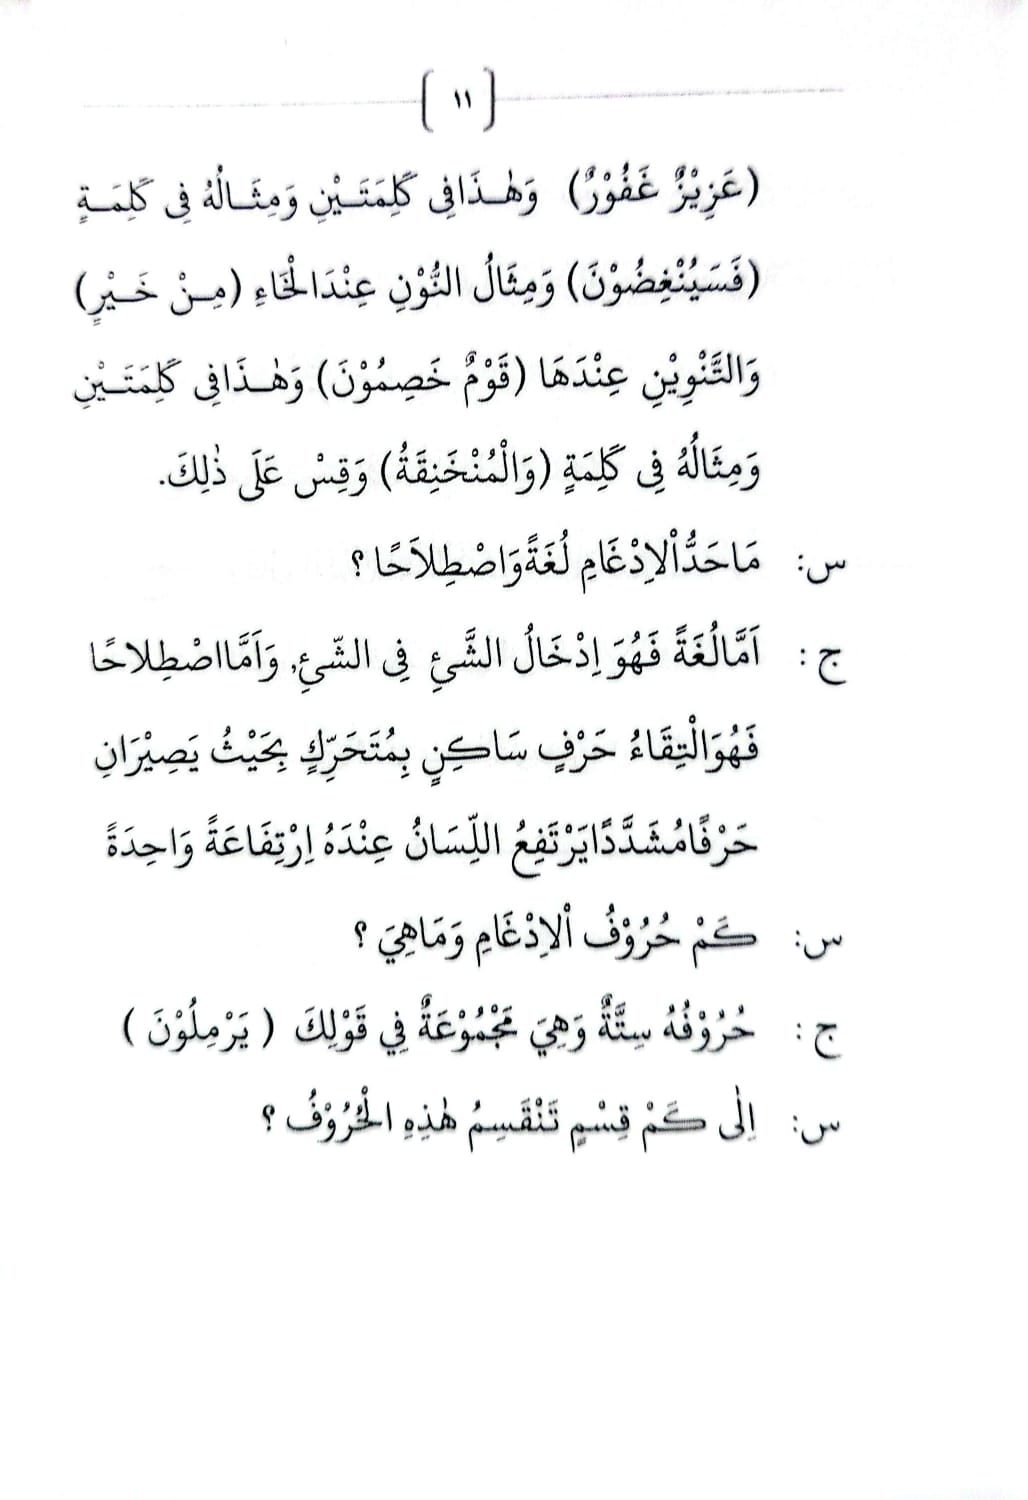 ١١
(عَزِيْزٌ غَفُوْرٌ) وَهٰذَا فِى كَلِمَتَيْنِ وَمِثَالُهُ فِى كَلِمَةٍ
(فَسَيُنْغِضُوْنَ) وَمِثَالُ النُّوْنِ عِنْدَ الْخَاءِ (مِنْ خَيْرٍ)
وَالتَّنْوِيْنِ عِنْدَهَا (قَوْمٌ خَصِمُوْنَ) وَهٰذَا فِى كَلِمَتَيْنِ
وَمِثَالُهُ فِى كَلِمَةٍ (وَالْمُنْخَنِقَةُ) وَقِسْ عَلَى ذٰلِكَ.
س: مَا حَدُّ اْلاِدْغَامِ لُغَةً وَاصْطِلاَحًا ؟
ج : اَمَّا لُغَةً فَهُوَ اِدْخَالُ الشَّئِ فِى الشّئِ, وَاَمَّا اصْطِلاحًا
فَهُوَ الْتِقَاءُ حَرْفٍ سَاكِنٍ بِمُتَحَرِّكٍ بِحَيْثُ يَصِيْرَانِ
حَرْفًا مُشَدَّدًا يَرْتَفِعُ اللِّسَانُ عِنْدَهُ اِرْتِفَاعَةً وَاحِدَةً
س: كَمْ حُرُوْفُ اْلاِدْغَامِ وَمَاهِيَ ؟
ج : حُرُوْفُهُ سِتَّةٌ وَهِيَ مَجْمُوْعَةٌ فِي قَوْلِكَ ( يَرْمِلُوْنَ )
س: اِلٰى كَمْ قِسْمٍ تَنْقَسِمُ هٰذِهِ الْحُرُوْفُ ؟